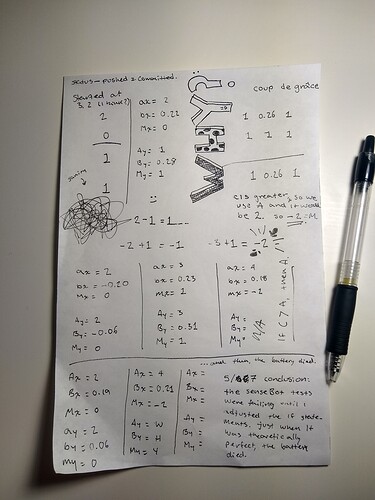 status - pushed & committed.
Started at
3:2 (1 hour?)
2
0
1
1
ax = 2
bx = 0.22
Mx = 0
Ay = 1
By = 0.28
My = 1
WHY?
coup de grâce
1 0.26 1
1 1 1
1 0.26 1
C is greater, so we
use A and it would
be 2. so -2 = M
2-1 = 1
-2 +1 = -1
-3 +1 = -2
If C > A, then A.
ax = 2
bx = -0.20
Mx = 0
Ay = 2
By = -0.06
My = 0
ax = 3
bx = 0.23
mx = 1
Ay = 3
By = 0.31
My = 1
ax = 4
bx = 0.18
mx = -2
Ay =
By =
My =
N/A
...and then, the battery died.
Ax = 2
Bx = 0.19
Mx = 0
ay = 2
by = 0.06
My = 0
Ax = 4
Bx = 0.21
Mx = -2
Ay = W
By = H
My = Y
Ax =
Bx =
Mx =
Ay =
By =
My =
conclusion:
the senseBot tests
were failing until I
adjusted the if state-
ments, just when it
was theoretically
perfect, the battery
died.